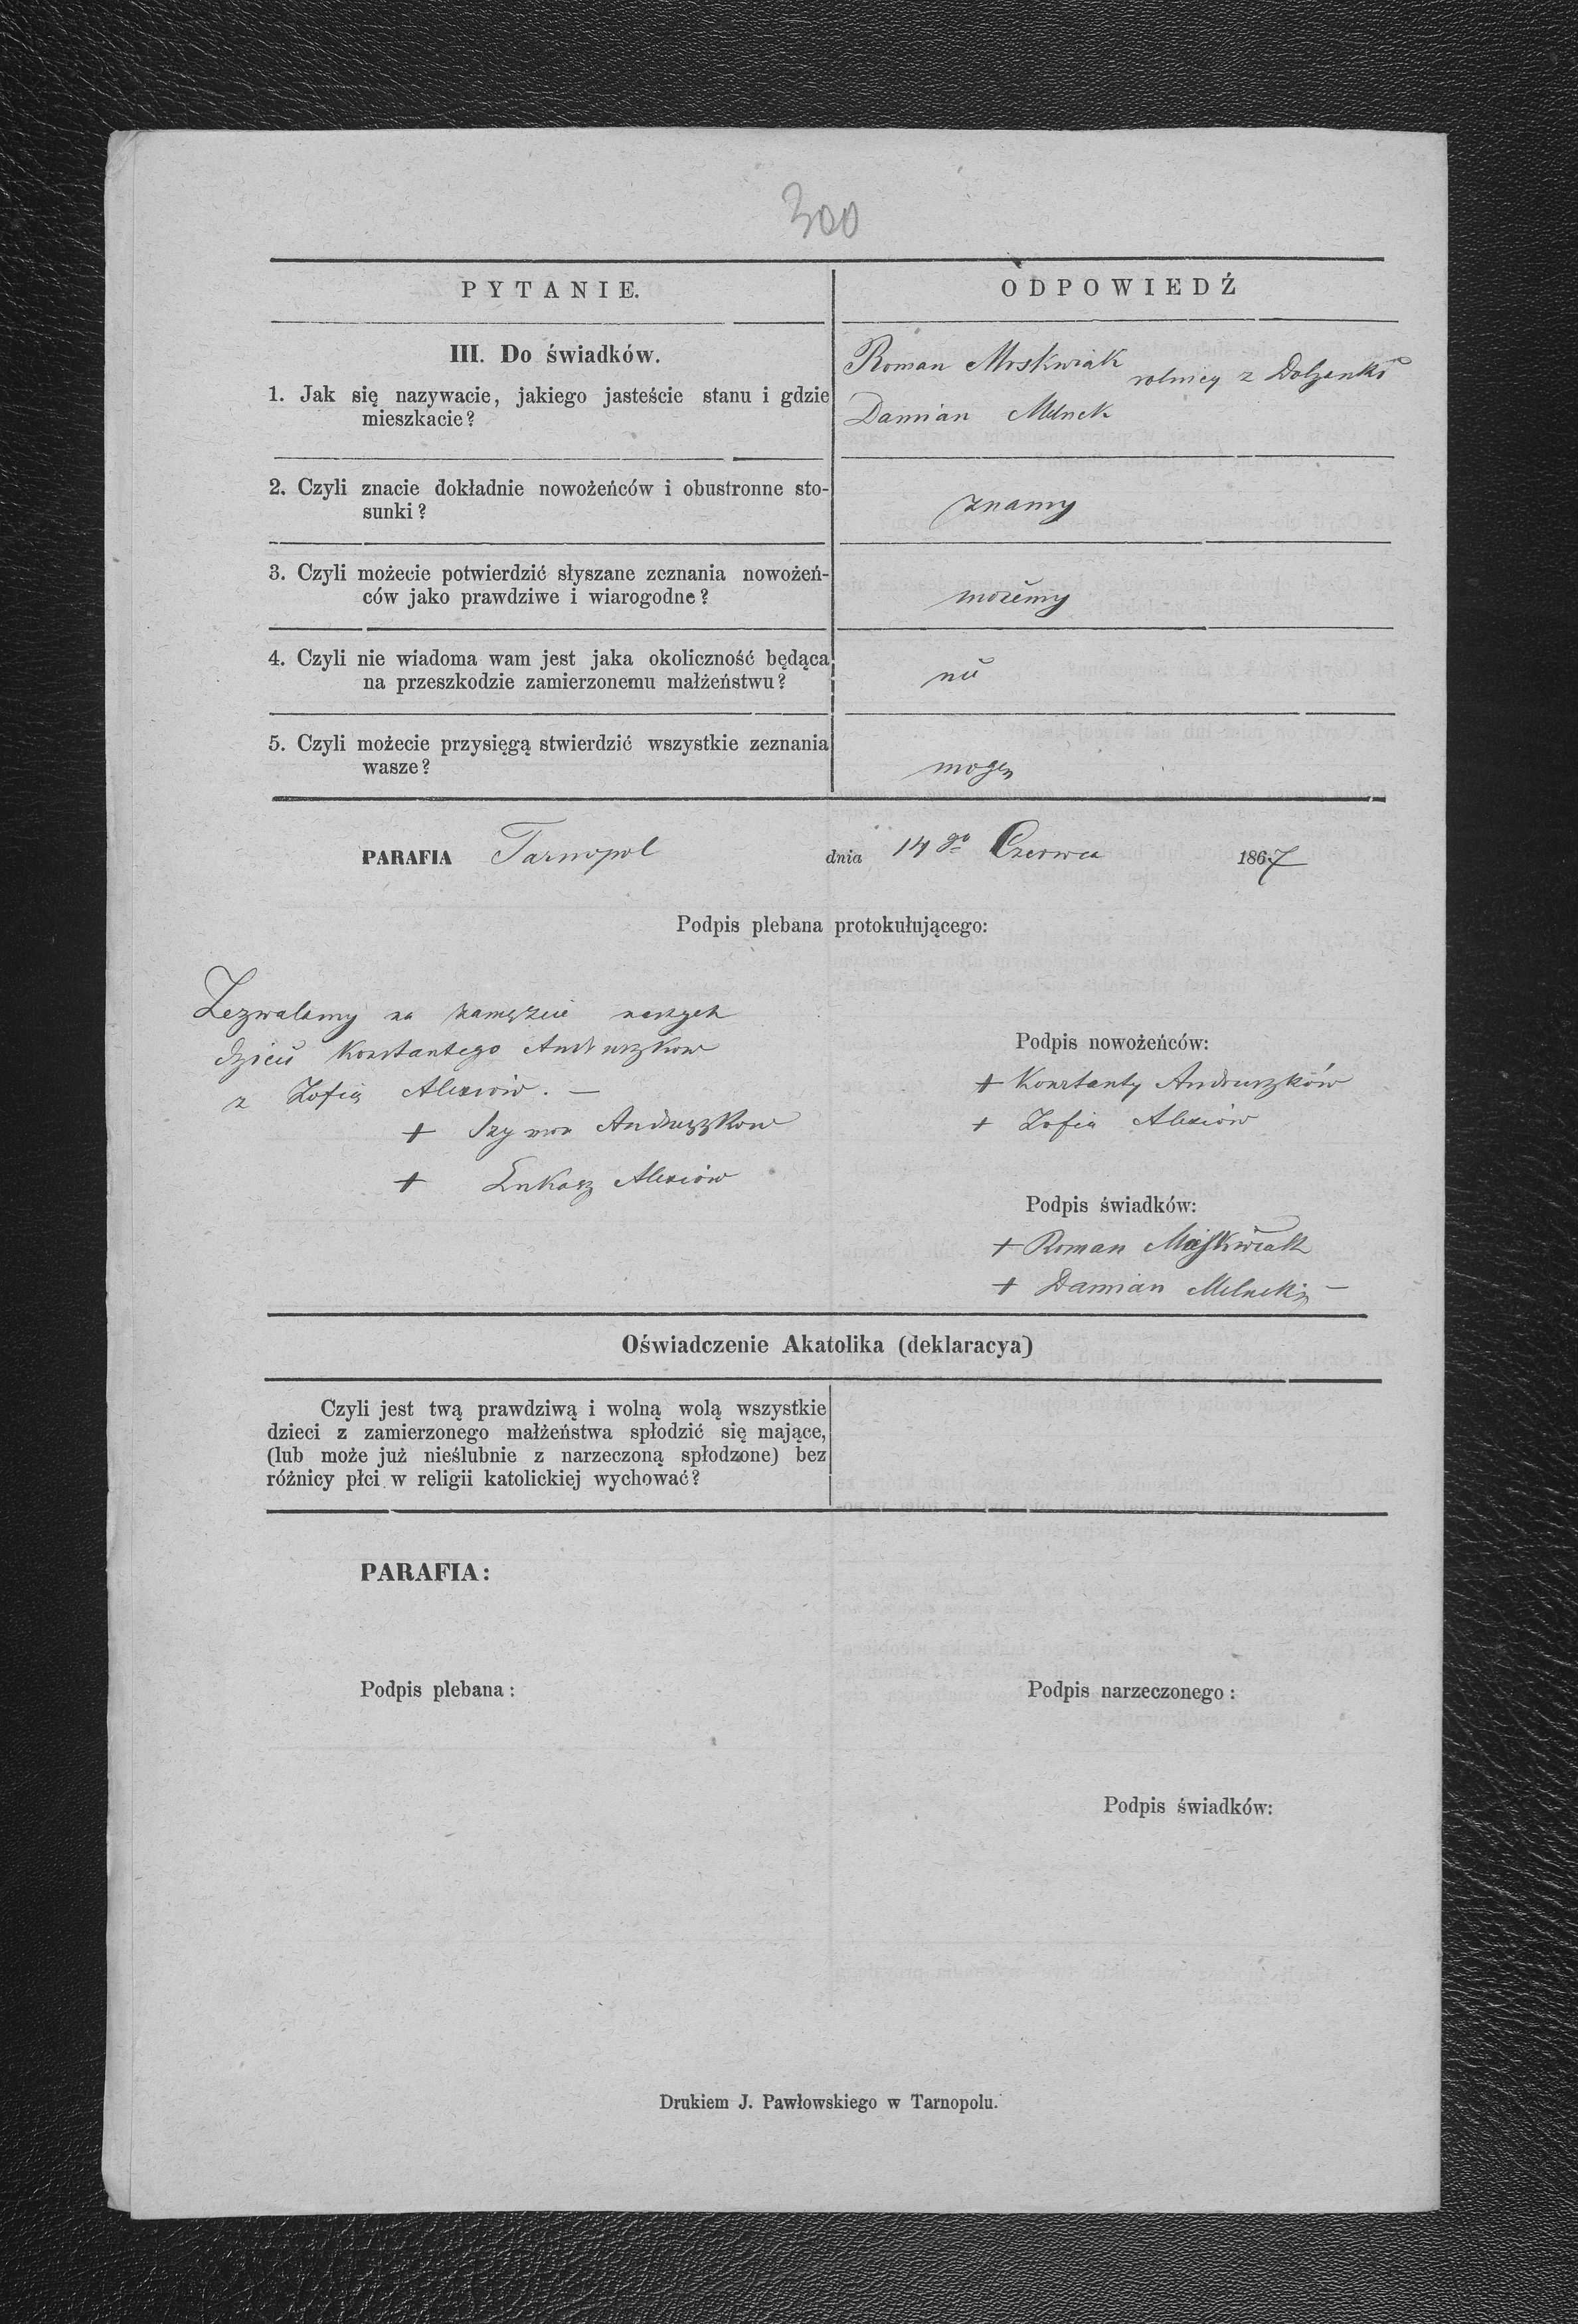 300
PYTANIE.
ODPOWIEDŹ
III. Do świadków.
1. Jak się nazywacie, jakiego jasteście stanu i gdzie
mieszkacie?
Roman Moskwiak
rolnicy z Dolzanki
Damian Melnek
2. Czyli znacie dokładnie nowożeńców i obustronne sto-
sunki?
znamy
3. Czyli możecie potwierdzić słyszane zeznania nowożeń-
ców jako prawdziwe i wiarogodne?
możemy
4. Czyli nie wiadoma wam jest jaka okoliczność będąca
na przeszkodzie zamierzonemu małżeństwu?
nie
5. Czyli możecie przysięgą stwierdzić wszystkie zeznania
wasze?
mogą
PARAFIA Tarnopol dnia 14 go Czerwca 1867
Podpis plebana protokułującego:
Zezwalamy na zamęzcie naszych
dzieci Konstantego Andruszkow
z Zofią Alexiów. —
+ Szymon Andruszkow
+ Łukasz Alexiów
Podpis nowożeńców:
+ Konstanty Andruszków
+ Zofia Alexiów
Podpis świadków:
+ Roman Moskwiak
+ Damian Melnek —
Oświadczenie Akatolika (deklaracya)
Czyli jest twą prawdziwą i wolną wolą wszystkie
dzieci z zamierzonego małżeństwa spłodzić się mające,
(lub może już nieślubnie z narzeczoną spłodzone) bez
różnicy płci w religii katolickiej wychować?
PARAFIA:
Podpis plebana:
Podpis narzeczonego:
Podpis świadków:
Drukiem J. Pawłowskiego w Tarnopolu.